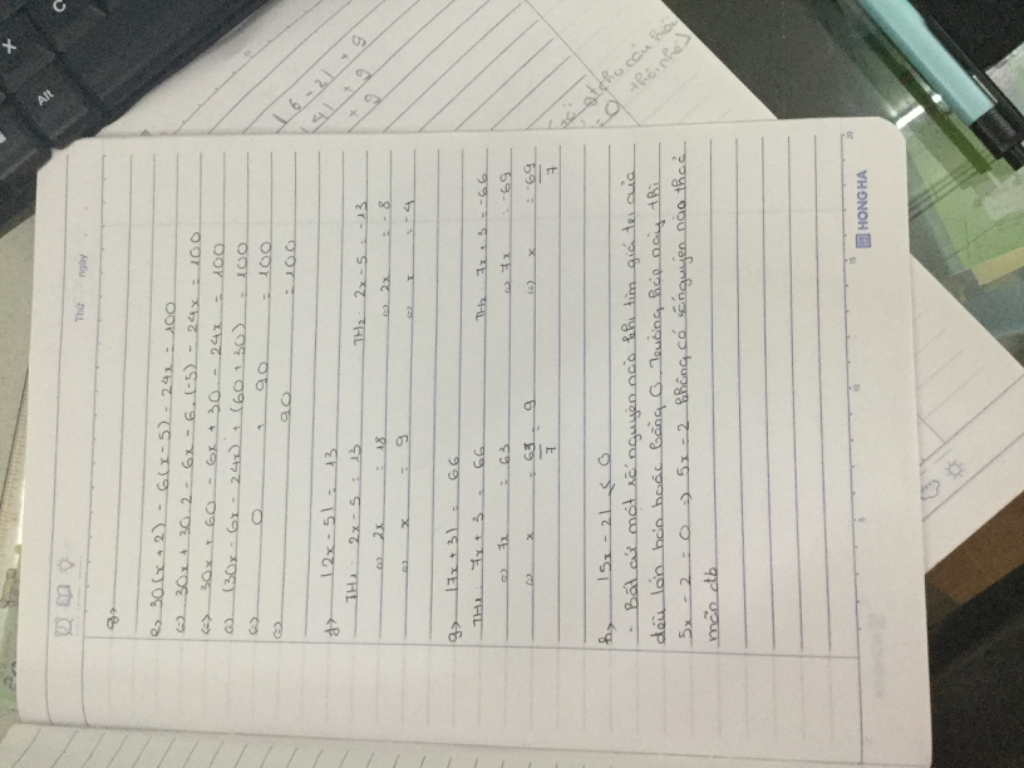 Thứ ngày
e, 30(x+2) - 6(x-5) - 24x = 100
(=) 30x + 30.2 - 6x - 6.(-5) - 24x = 100
(=) 30x + 60 - 6x + 30 - 24x = 100
(=) (30x - 6x - 24x) + (60 + 30) = 100
(=) 0 + 90 = 100
(=) 90 = 100
f, |2x - 5| = 13
TH1: 2x - 5 = 13 TH2: 2x - 5 = -13
(=) 2x = 18 (=) 2x = -8
(=) x = 9 (=) x = -4
g, |7x + 3| = 66
TH1: 7x + 3 = 66 TH2: 7x + 3 = -66
(=) 7x = 63 (=) 7x = -69
(=) x = 63/7 = 9 (=) x = -69/7
h, |5x - 2| ≤ 0
- Bất cứ một số nguyên nào khi tìm giá trị của
đều lớn hơn hoặc bằng 0. Trường hợp này thì
5x - 2 = 0 => 5x = 2 không có số nguyên nào thoả
mãn đb
HONG HA
Alt
X
C
|6 - 2| + 9
|4| + 9
+ 9
= 0